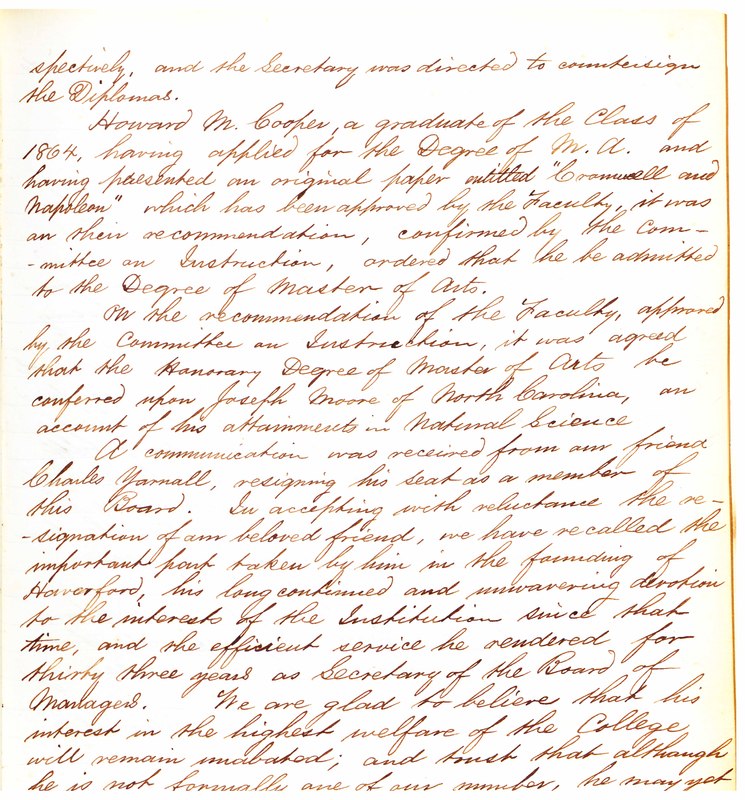 spectively, and the Secretary was directed to countersign
the Diplomas.
Howard M. Cooper, a graduate of the Class of
1864, having applied for the Degree of M. A. and
having presented an original paper entitled "Cromwell and
Napoleon" which has been approved by the Faculty, it was
on their recommendation, confirmed by the Com-
-mittee on Instruction, ordered that he be admitted
to the Degree of Master of Arts.
On the recommendation of the Faculty, approved
by the Committee on Instruction, it was agreed
that the Honorary Degree of Master of Arts be
conferred upon Joseph Moore of North Carolina, on
account of his attainments in Natural Science
A communication was received from our friend
Charles Yarnall, resigning his seat as a member of
this Board. In accepting with reluctance the re-
-signation of our beloved friend, we have recalled the
important part taken by him in the founding of
Haverford, his long continued and unwavering devotion
to the interests of the Institution since that
time, and the efficient service he rendered for
thirty three years as Secretary of the Board of
Managers. We are glad to believe that his
interest in the highest welfare of the College
will remain unabated; and trust that although
he is not formally one of our number, he may yet